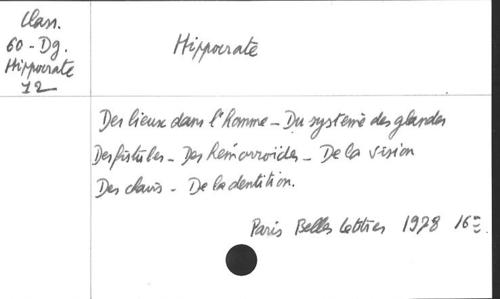 Class.
60 - Dg.
Hippocrate
12
Hippocrate
Des lieux dans l'homme - Du système des glandes
Des fistules - Des hémorroïdes - De la vision
Des chairs - De la dentition.
Paris Belles Lettres 1978 16=